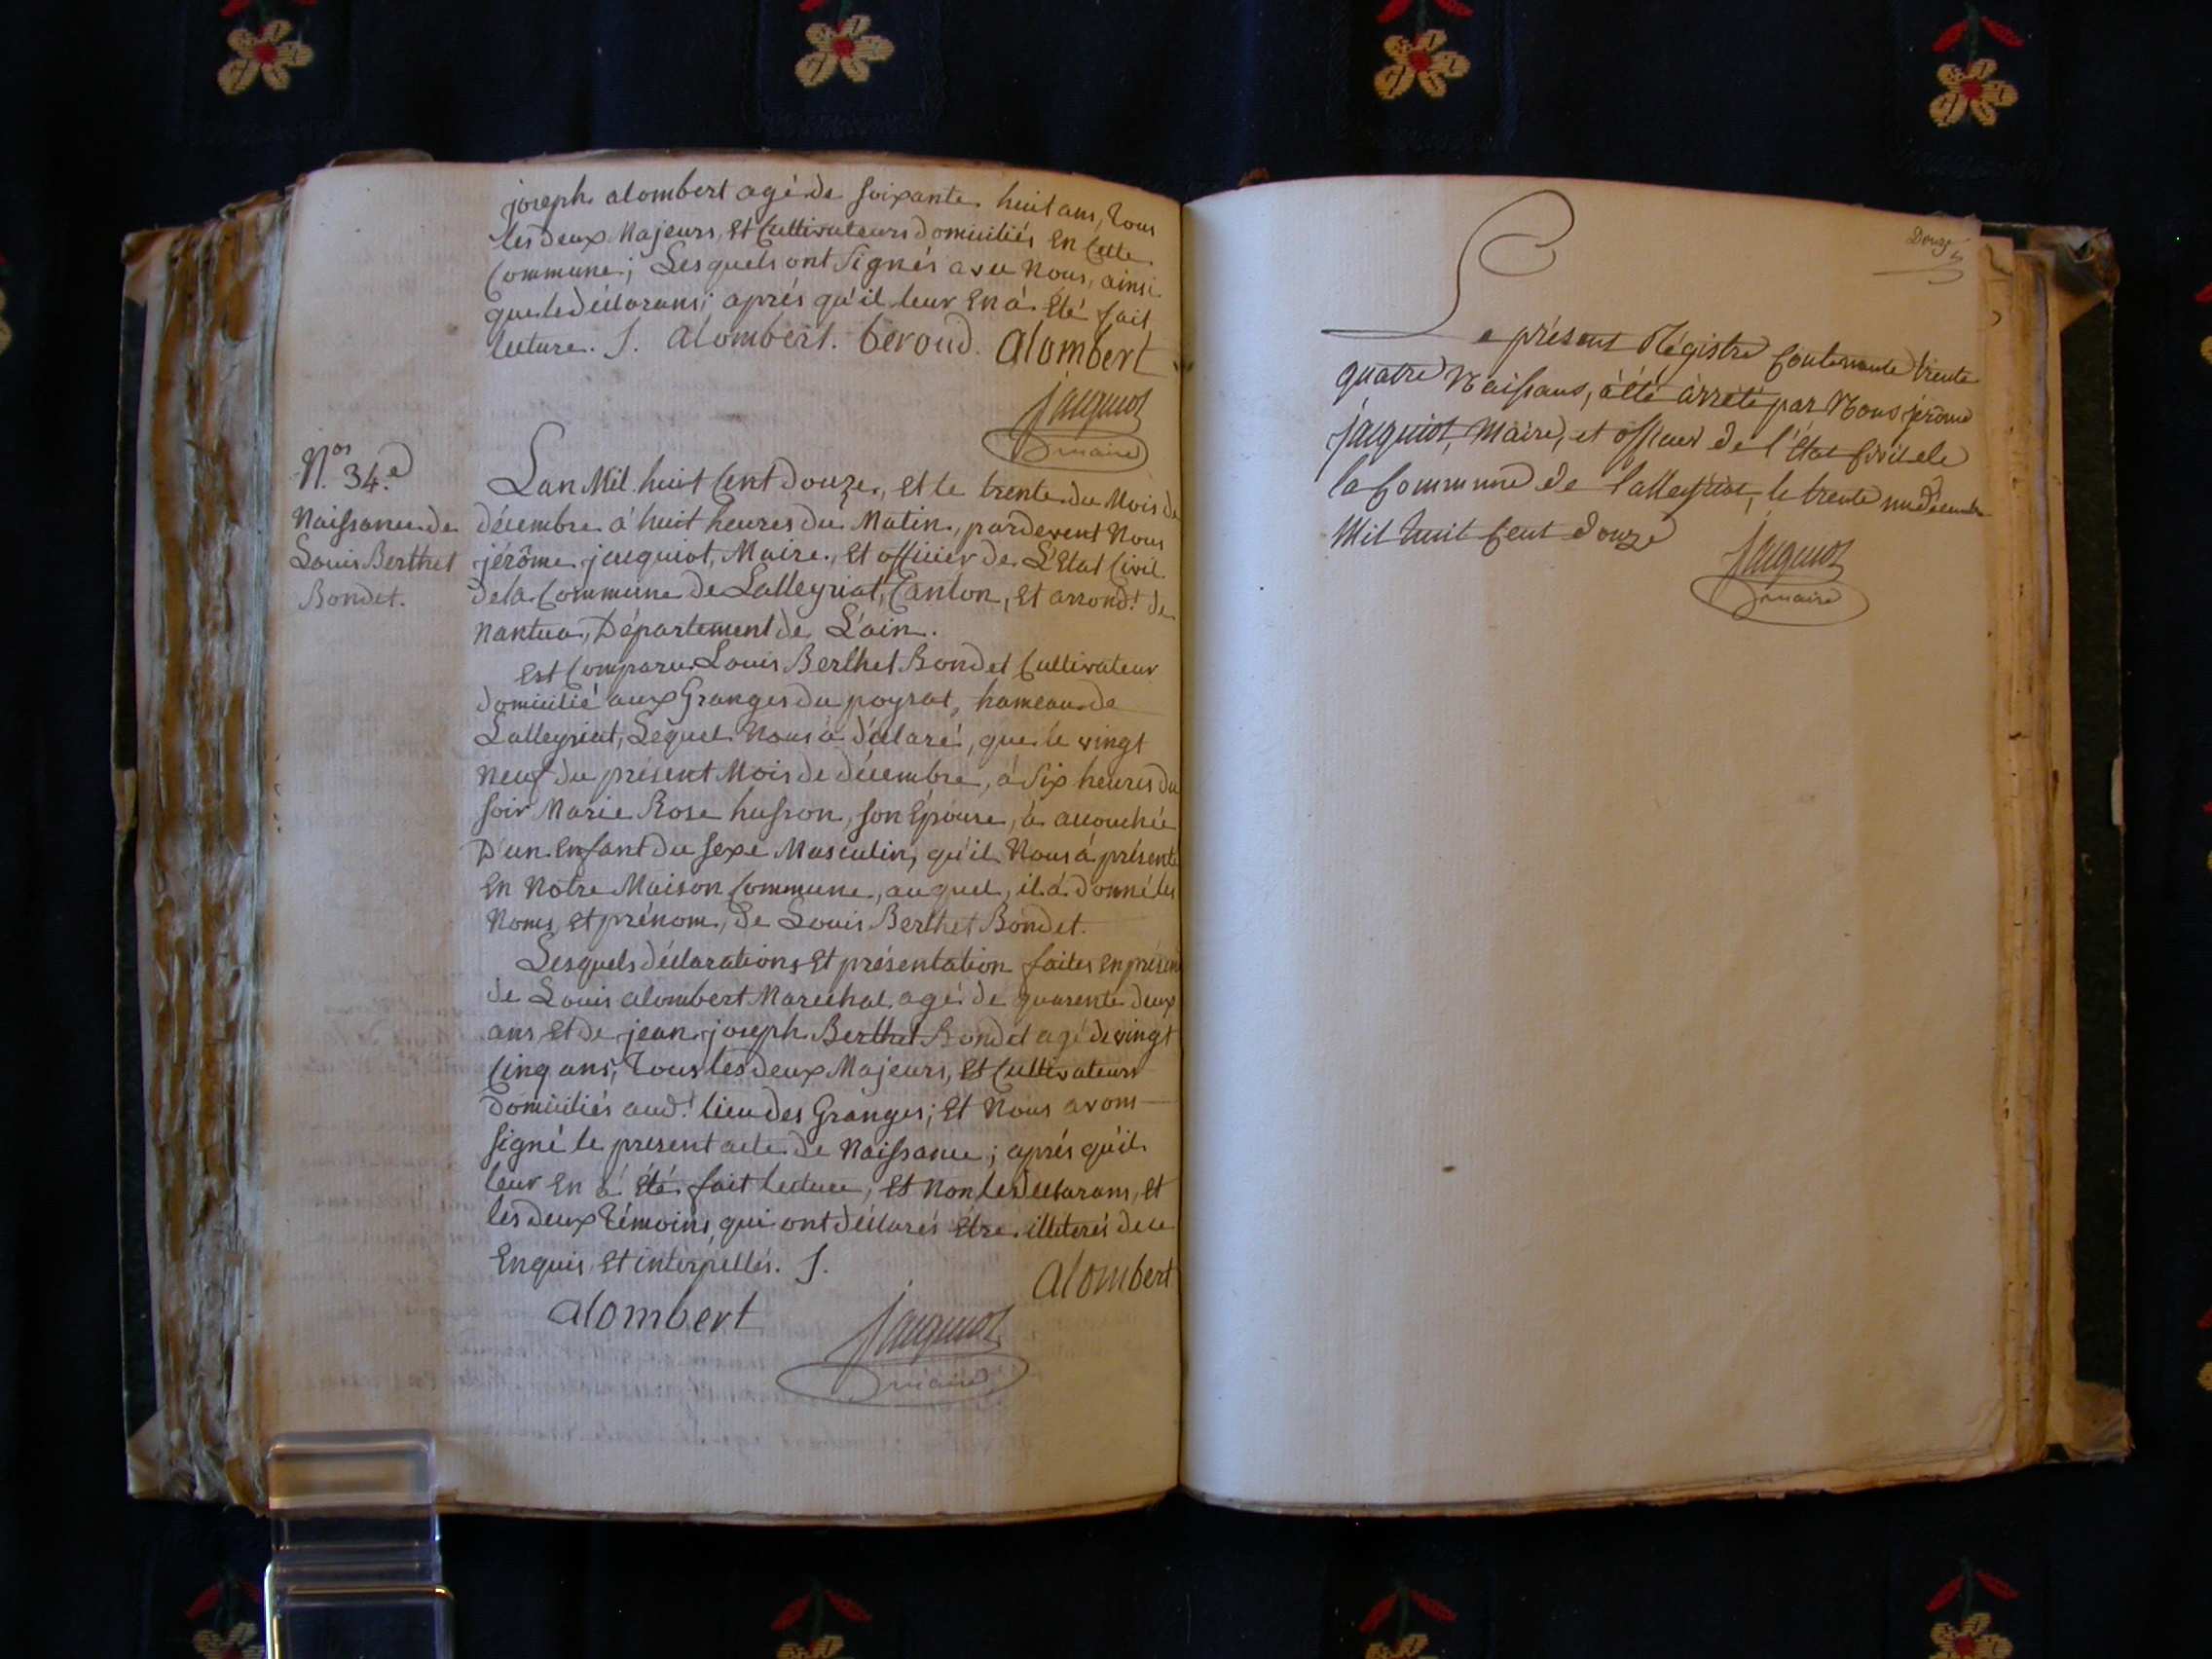 joseph alombert agé de soixante huit ans, Tous
les deux Majeurs, Et Cultivateurs domiciliés En Cette
Commune; Lesquels ont Signés avec Nous, ainsi
que le déclarans; aprés qu'il leur En á Eté fait
lecture. J. alombert. beroud. alombert
jacquiot
maire
Nos 34e
Naissance de
Louis Berthet
Bondet.
Lan Mil huit Cent Douze, Et le trente du Mois de
décembre á huit heures du Matin, pardevent Nous
jérôme jacquiot, Maire, Et officier de L'Etat Civil
de la Commune de Lalleyriat, Canton, Et arrondt de
Nantua, Département de L'ain.
Est Comparu Louis Berthet Bondet Cultivateur
domicilié aux Granges du poyrat, hameau de
Lalleyriat, Lequel Nous á déclaré, que le vingt
Neuf du présent Mois de décembre, á Six heures du
soir Marie Rose husson, son Epouse, á accouchée
D'un Enfant du sexe Masculin, qu'il Nous á présenté
En Notre Maison Commune, auquel, il á donné les
Noms, Et prénom, de Louis Berthet Bondet.
Lesquels déclarations Et présentation faites En présen
de Louis alombert Maréchal agé de quarente deux
ans Et de jean joseph Berthet Bondet agé de vingt
Cinq ans, Tous les deux Majeurs, Et Cultivateurs
domiciliés audt lieu des Granges; Et Nous avons
signé le present acte de Naissance; aprés qu'il
leur En á été fait lecture, Et Non les déclarans, Et
les deux Témoins, qui ont déclarés Etre illeterés de ce
Enquis Et interpellés. J.
alombert
alombert
jacquiot
maire
Douze
Le présent Régistre Contenante trente
quatre Naissans, á été arrété par Nous jérome
jacquiot, Maire, et officier de l'état Civil de
la Commune de Lalleyriat, le trente un décembre
Mil huit Cent douze
jacquiot
maire